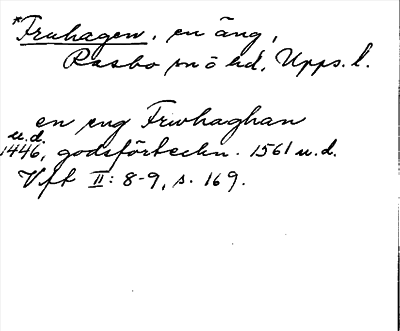 *Fruhagen, en äng,
Rasbo sn ö hd, Upps. l.
en eng Friwhaghan
u.d.
1446, godsförteckn. 1561 u.d.
Vft II: 8-9, s. 169.